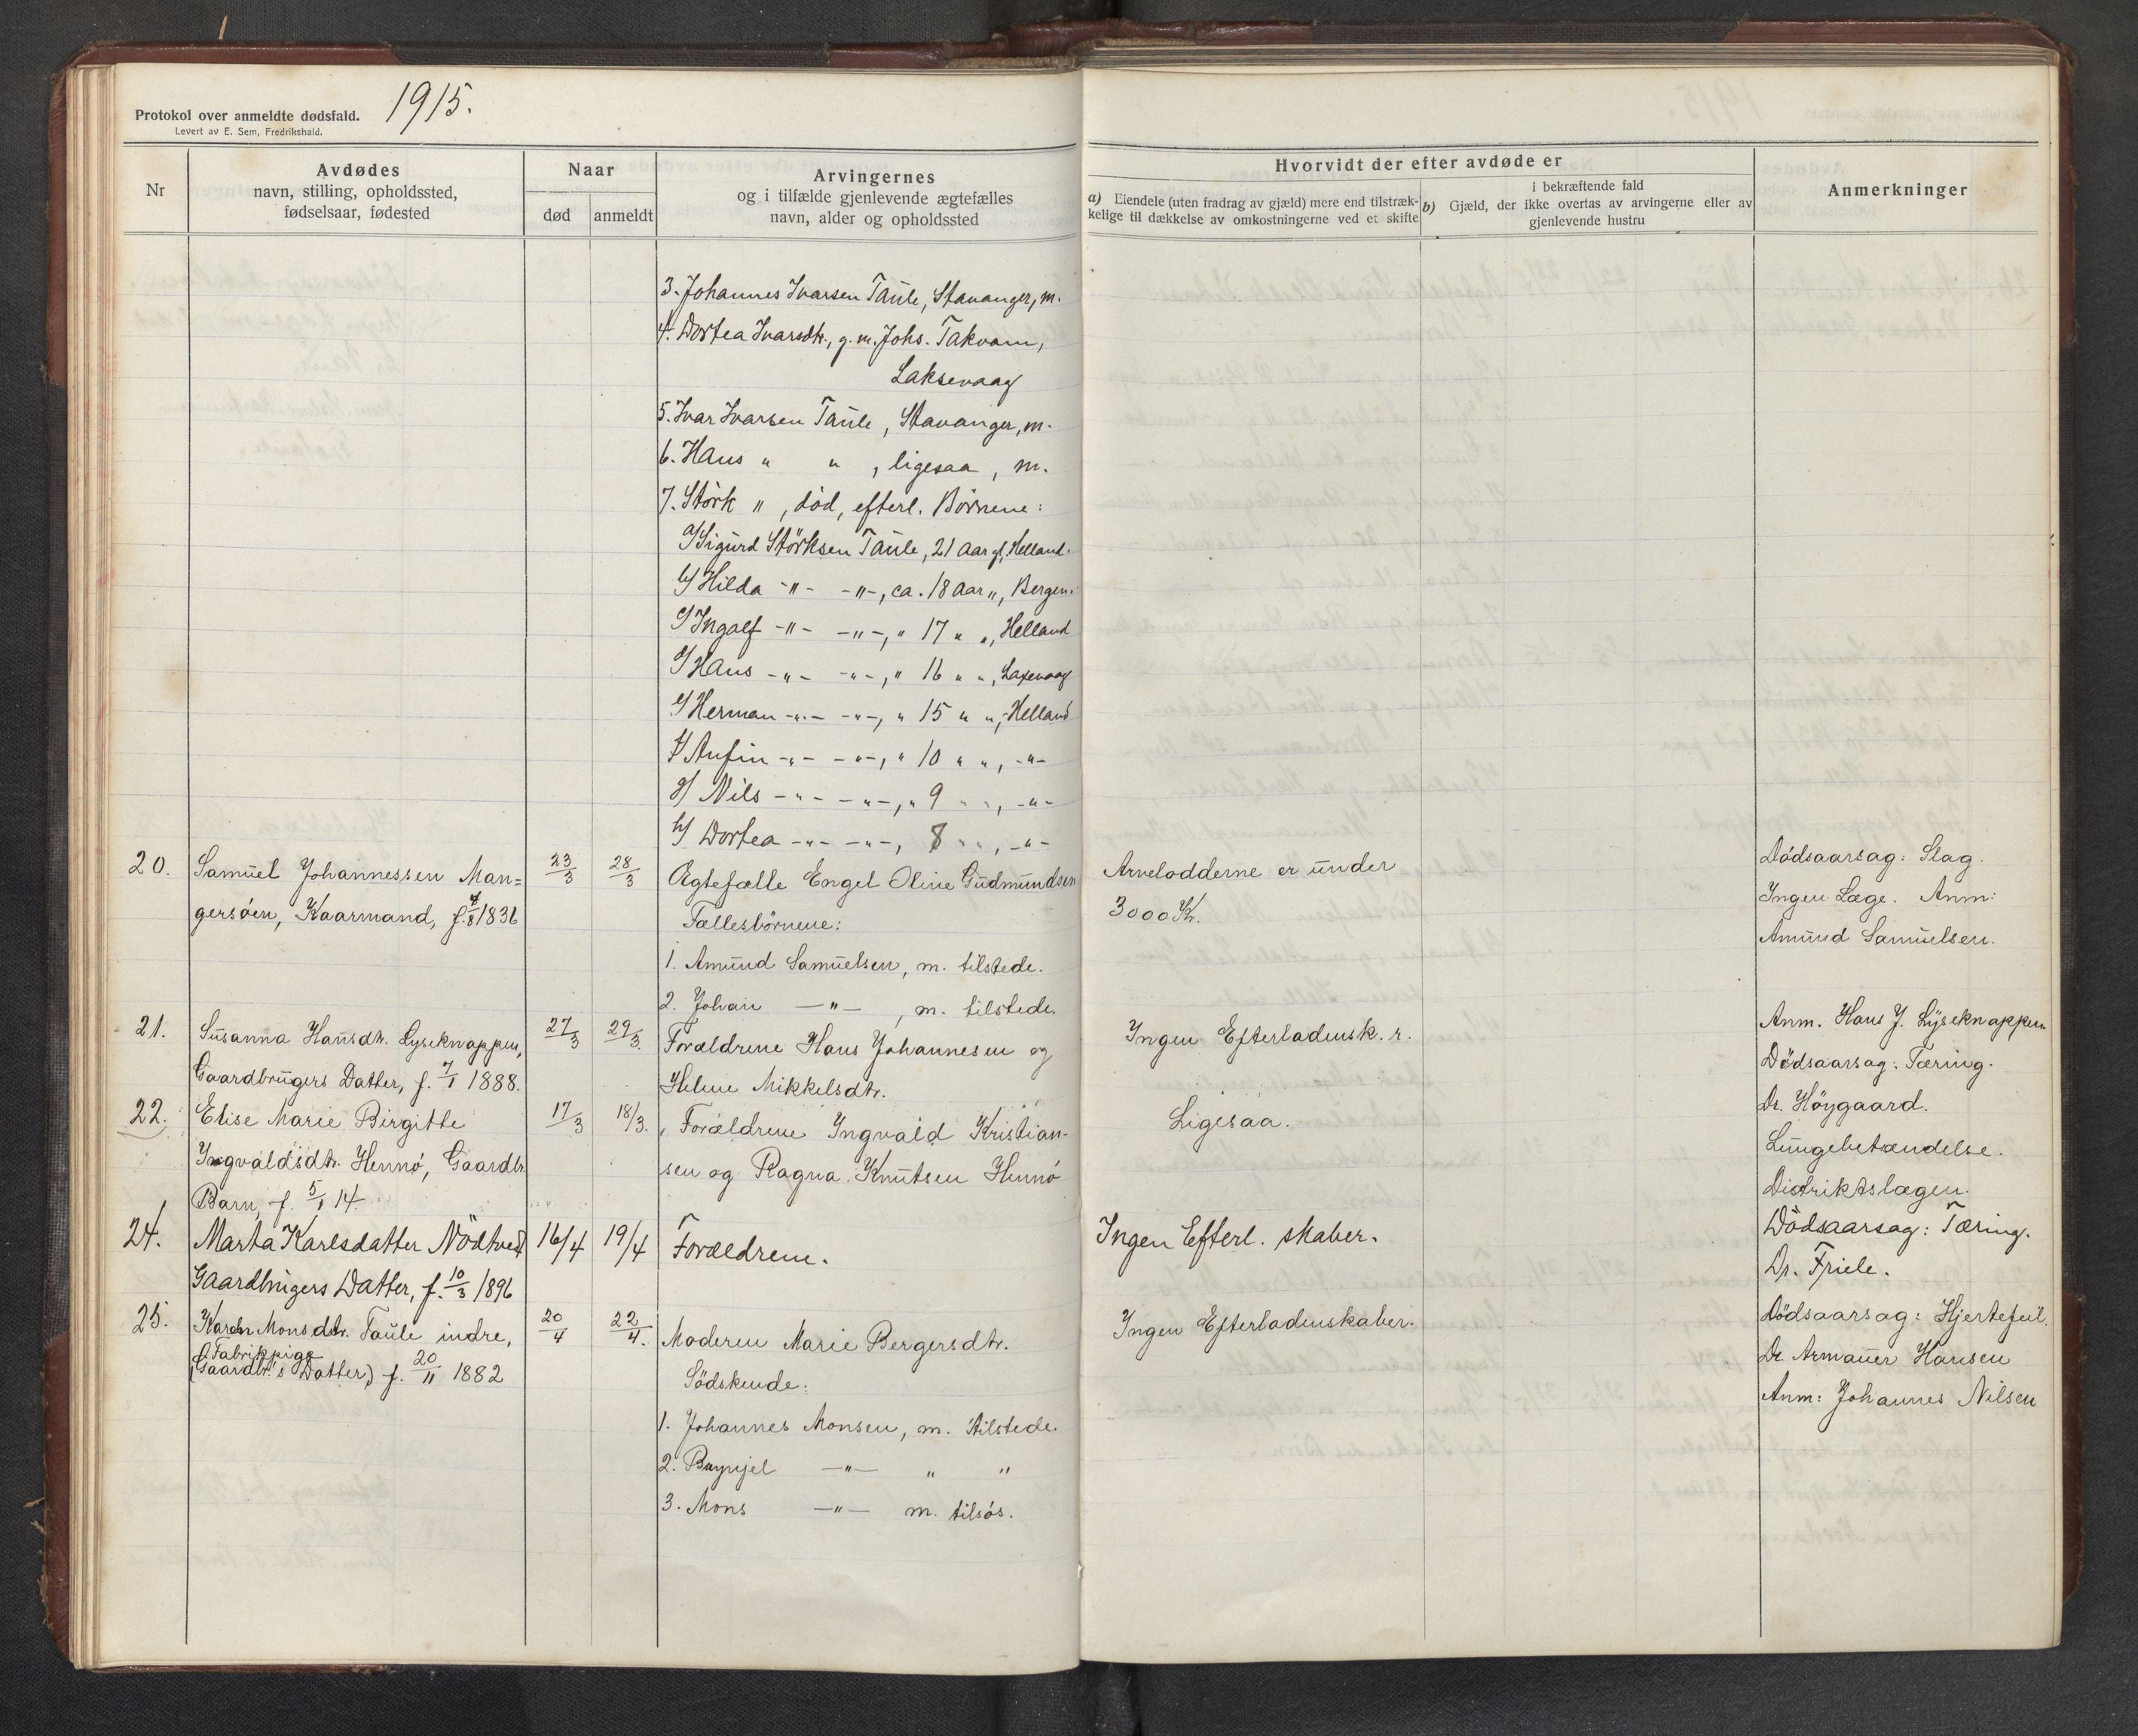 Protokol over anmeldte dødsfald. 1915.
Levert av E. Sem, Fredrikshald.
Nr
Avdødes
navn, stilling, opholdssted,
fødselsaar, fødested
Naar
død
anmeldt
Arvingernes
og i tilfælde gjenlevende ægtefælles
navn, alder og opholdssted
Hvorvidt der efter avdøde er
a) Eiendele (uten fradrag av gjæld) mere end tilstræk-
kelige til dækkelse av omkostningerne ved et skifte
i bekræftende fald
b) Gjæld, der ikke overtas av arvingerne eller av
gjenlevende hustru
Anmerkninger
3. Johannes Ivarsen Taule, Stavanger, m.
4. Dortea Ivarsdtr., g. m. Johs. Takvam,
Laksevaag
5. Ivar Ivarsen Taule, Stavanger, m.
6. Hans " " , ligesaa, m.
7. Störk " , död, efterl. Börnene:
a/ Sigurd Störksen Taule, 21 Aar gl, Helland.
b/ Hilda -"- -"-, ca. 18 Aar ", Bergen.
c/ Ingolf -"- -"-, " 17 " ", Helland
d/ Hans -"- -"-, " 16 " ", Laxevaag
e/ Herman -"- -"-, " 15 " ", Helland
f/ Anfin -"- -"-, " 10 " ", -"-
g/ Nils -"- -"-, " 9 " ", -"-
h/ Dortea -"- -"-, 8 " ", -"-
20. Samuel Johannessen Man=
gersöen, Kaarmand, f. 4/8 1836
23/3
28/3
Ægtefælle Engel Oline Gudmundsen
Fællesbörnene:
1. Amund Samuelsen, m. tilstede.
2. Johan —"— , m. tilstede.
Arvelodderne er under
3000 Kr.
Dödsaarsag: Slag.
Ingen Læge. Anm:
Amund Samuelsen.
21. Susanna Hansdtr. Lyseknappen,
Gaardbrugers Datter, f. 7/1 1888.
27/3
29/3.
Forældrene Hans Johannesen og
Helene Mikkelsdtr.
Ingen Efterladensk. r.
Anm. Hans J. Lyseknappen
Dödsaarsag: Tæring.
Dr. Höygaard.
22. Elise Marie Birgitte
Ingvaldsdtr. Hennö, Gaardbr.
Barn, f. 5/1 14.
17/3
18/3.
Forældrene Ingvald Kristian-
sen og Ragna Knutsen Hennö
Ligesaa.
Lungebetændelse.
Distriktslægen.
24. Marta Karlsdatter Nödtvedt
Gaardbrugers Datter, f. 10/3 1896
16/4
19/4
Forældrene.
Ingen Efterl. skaber.
Dödsaarsag: Tæring.
Dr. Friele.
25. Karen Monsdtr. Taule indre,
Fabrikpige
(Gaardbr's Datter,) f. 20/11 1882
20/4
22/4.
Moderen Marie Bergersdtr.
Södskende:
1. Johannes Monsen, m. tilstede.
2. —"— " "
3. Mons —"— m. tilsös.
Ingen Efterladenskaber.
Dödsaarsag: Hjertefeil.
Dr. Armauer Hansen
Anm: Johannes Nilsen